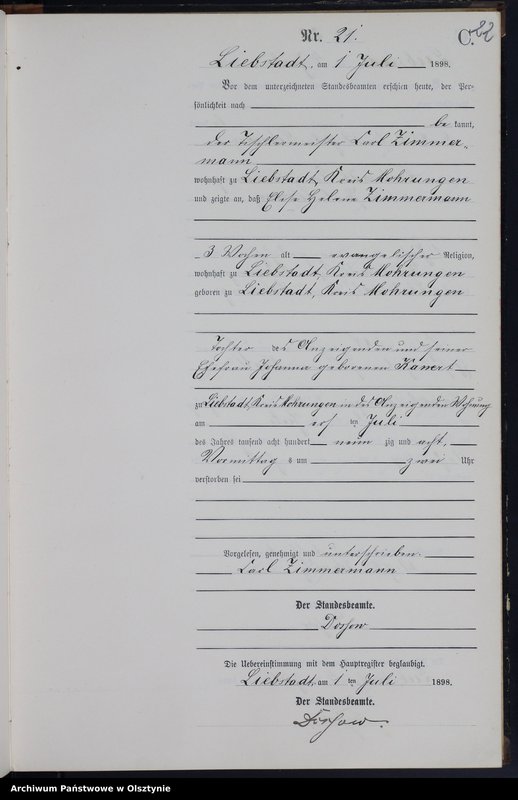 Nr. 21.
C. 22
Liebstadt, am 1 Juli 1898.
Vor dem unterzeichneten Standesbeamten erschien heute, der Per-
sönlichkeit nach
be kannt,
der Tischlermeister Carl Zimmer-
mann
wohnhaft zu Liebstadt, Kreis Mohrungen
und zeigte an, daß Elise Helene Zimmermann
3 Wochen alt evangelischer Religion,
wohnhaft zu Liebstadt, Kreis Mohrungen
geboren zu Liebstadt, Kreis Mohrungen
Tochter des Anzeigenden und seiner
Ehefrau Johanna geborenen Kanert
zu Liebstadt, Kreis Mohrungen in des Anzeigenden Wohnung
am ers ten Juli
des Jahres tausend acht hundert neun zig und acht,
Vormittag s um zwei Uhr
verstorben sei
Vorgelesen, genehmigt und unterschrieben.
Carl Zimmermann
Der Standesbeamte.
Die Uebereinstimmung mit dem Hauptregister beglaubigt.
Liebstadt, am 1 ten Juli 1898.
Der Standesbeamte.
Archiwum Państwowe w Olsztynie